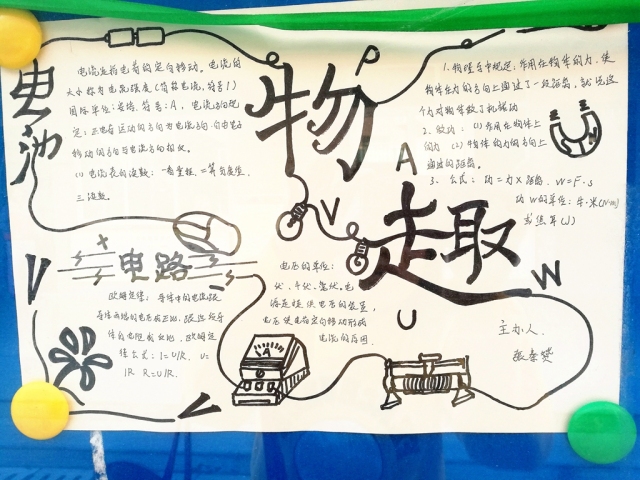 电池
电流是指电荷的定向移动。电流的
大小称为电流强度(简称电流,符号I)
国际单位:安培,符号:A,电流方向规
定:正电荷运动的方向为电流方向,自由电子
移动的方向与电流方向相反。
(1)电流表的读数:一看量程,二算分度值,
三读数。
物
P
1、物理学中规定:作用在物体的力,使
物体在力的方向上通过了一段距离,就说这
个力对物体做了机械功
2、做功:(1)作用在物体上
的力 (2)物体的力的方向上
通过的距离。
3、公式:功=力×距离,W=F·s
功W的单位:牛·米(N·m)
或焦耳(J)
A
V
趣
W
U
V
电路
欧姆定律:导体中的电流跟
导体两端的电压成正比,跟这段导
体的电阻成反比,欧姆定
律公式:I=U/R, U=
IR R=U/I.
电压的单位:
伏、千伏、毫伏。电
源是提供电压的装置,
电压使电荷定向移动形成
电流的原因
主办人.